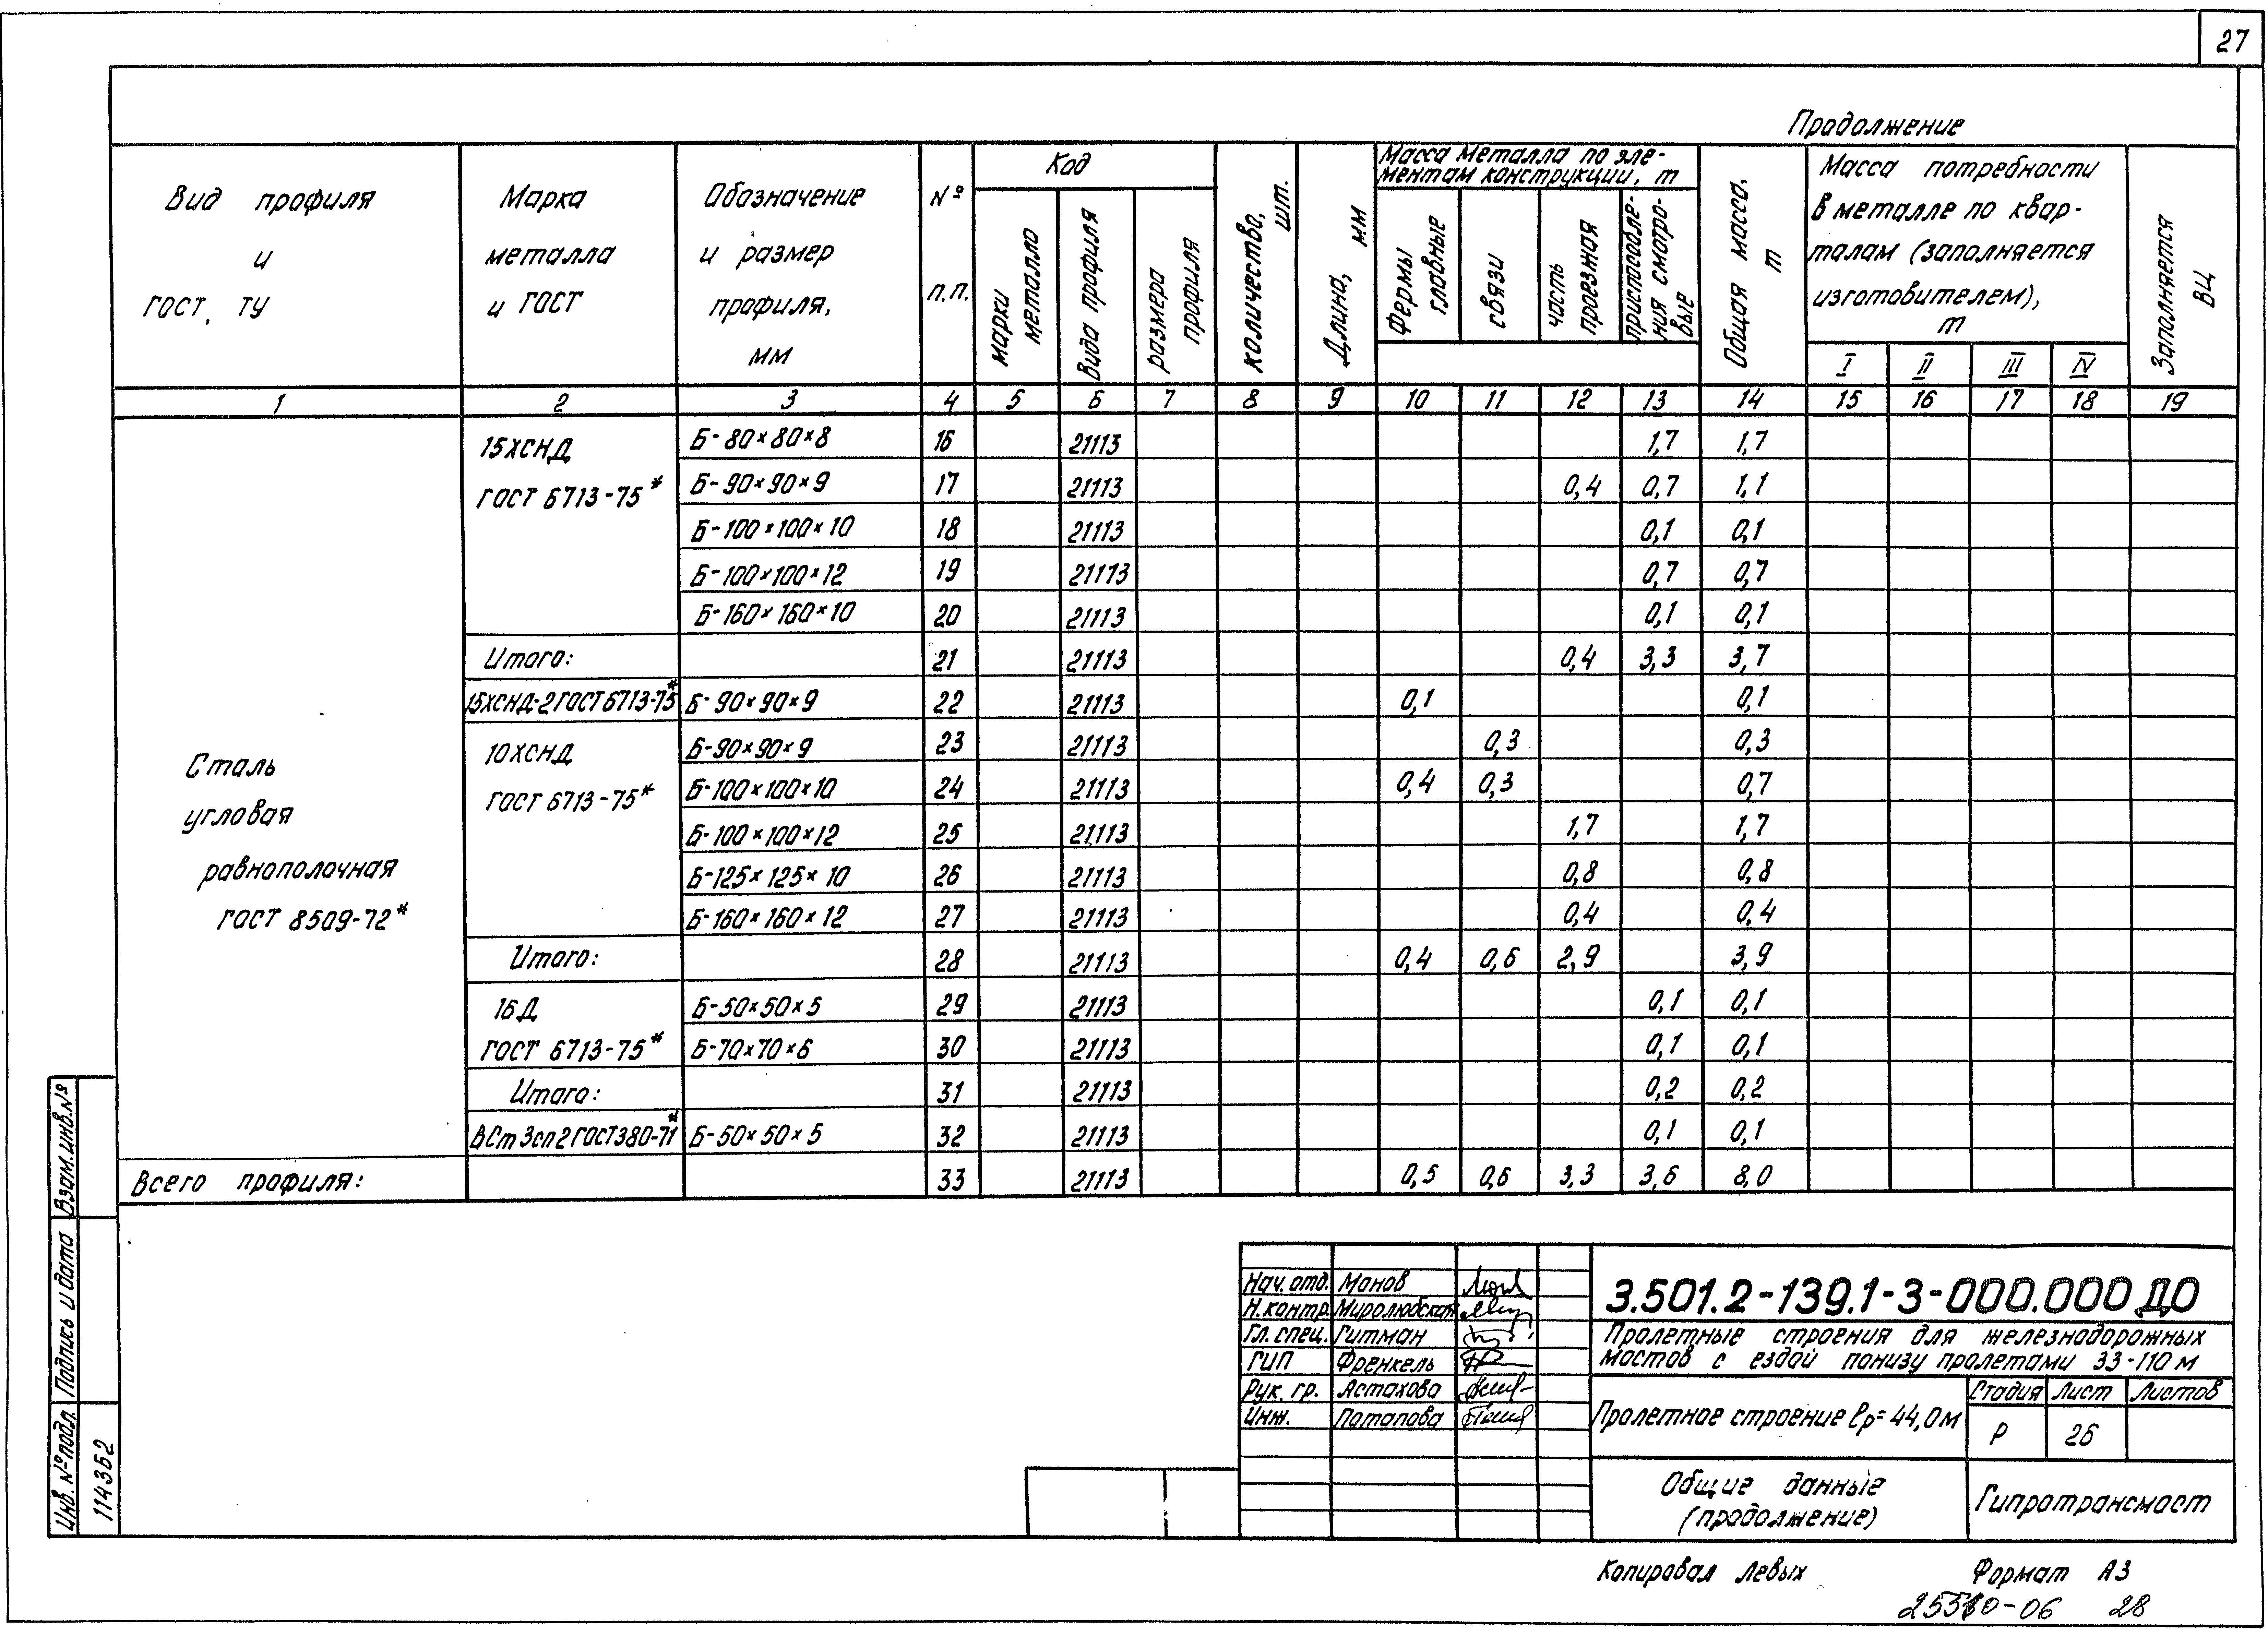 27
Продолжение
Вид профиля и ГОСТ, ТУ
Марка металла и ГОСТ
Обозначение и размер профиля, мм
№ п.п.
Код
марки металла
вида профиля
размера профиля
количество, шт.
Длина, мм
Масса металла по эле-
ментам конструкции, т
Фермы главные
связи
часть проезжая
приспособле-
ния смотро-
вые
Общая масса, т
Масса потребности
в металле по квар-
талам (заполняется
изготовителем),
т
I II III IV
Заполняется ВЦ
1 2 3 4 5 6 7 8 9 10 11 12 13 14 15 16 17 18 19
Сталь
угловая
равнополочная
ГОСТ 8509-72*
15ХСНД
ГОСТ 6713-75*
Б-80×80×8 16 21113 1,7 1,7
Б-90×90×9 17 21113 0,4 0,7 1,1
Б-100×100×10 18 21113 0,1 0,1
Б-100×100×12 19 21113 0,7 0,7
Б-160×160×10 20 21113 0,1 0,1
Итого: 21 21113 0,4 3,3 3,7
15ХСНД-2 ГОСТ 6713-75* Б-90×90×9 22 21113 0,1 0,1
10ХСНД
ГОСТ 6713-75*
Б-90×90×9 23 21113 0,3 0,3
Б-100×100×10 24 21113 0,4 0,3 0,7
Б-100×100×12 25 21113 1,7 1,7
Б-125×125×10 26 21113 0,8 0,8
Б-160×160×12 27 21113 0,4 0,4
Итого: 28 21113 0,4 0,6 2,9 3,9
16Д
ГОСТ 6713-75*
Б-50×50×5 29 21113 0,1 0,1
Б-70×70×6 30 21113 0,1 0,1
Итого: 31 21113 0,2 0,2
ВСт3сп2 ГОСТ 380-71* Б-50×50×5 32 21113 0,1 0,1
Всего профиля: 33 21113 0,5 0,6 3,3 3,6 8,0
Взам.инв.№
Подпись и дата
Инв.№подл.
114362
Нач.отд. Монов
Н.контр. Миролюбская
Гл.спец. Гитман
ГИП Френкель
Рук.гр. Астахова
Инж. Потапова
3.501.2-139.1-3-000.000 ДО
Пролетные строения для железнодорожных
мостов с ездой понизу пролетами 33-110 м
Пролетное строение ℓр=44,0м
Стадия Лист Листов
Р 26
Общие данные
(продолжение)
Гипротрансмост
Копировал Левых
Формат А3
28